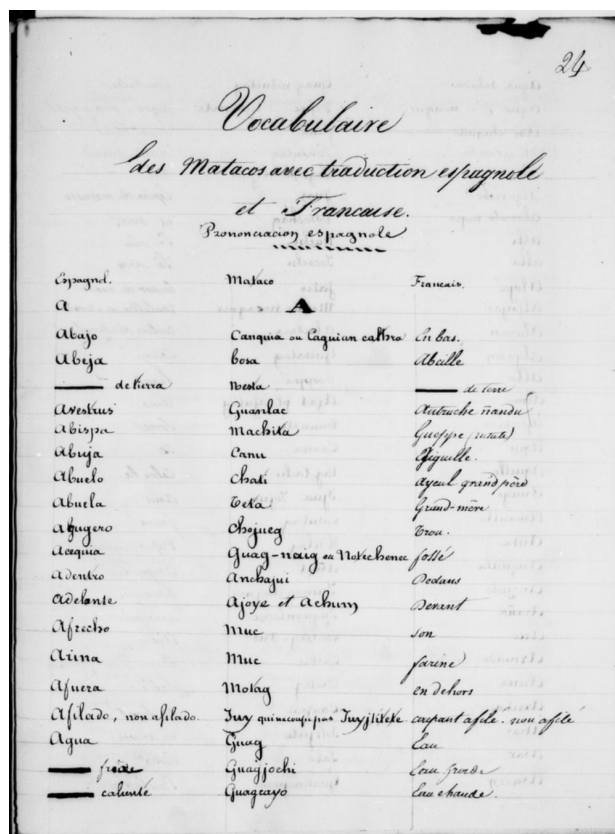 24
Vocabulaire
des Matacos avec traduction espagnole
et Francaise.
Prononciacion espagnole
Espagnol. Mataco Francais.
A A
Abajo Canquia ou Caguian cathra En bas.
Abeja bosa Abeille
— de tierra Nesta — de terre
Avestrus Guanlac Autruche ñandu
Abispa Machita Gueppe
Abuja Canu Aiguille.
Abuelo chati ayeul grand père
Abuela Teta Grand-mère
Abugero chojueg Trou.
Acequia Guag-naig ou Notechenec fossé
Adentro Anchajui Dedans
Adelante Ajoye et Achum Devant
Afrecho Muc son
Airna Muc farine
Afuera Molag en dehors
Afilado, non afilado. Juy qui ne coupe pas Juyjlitexe coupant afilé. non afilé
Agua Guag Eau
— froide Guagjochi Eau froide
— caliente Guagcayo Eau chaude.